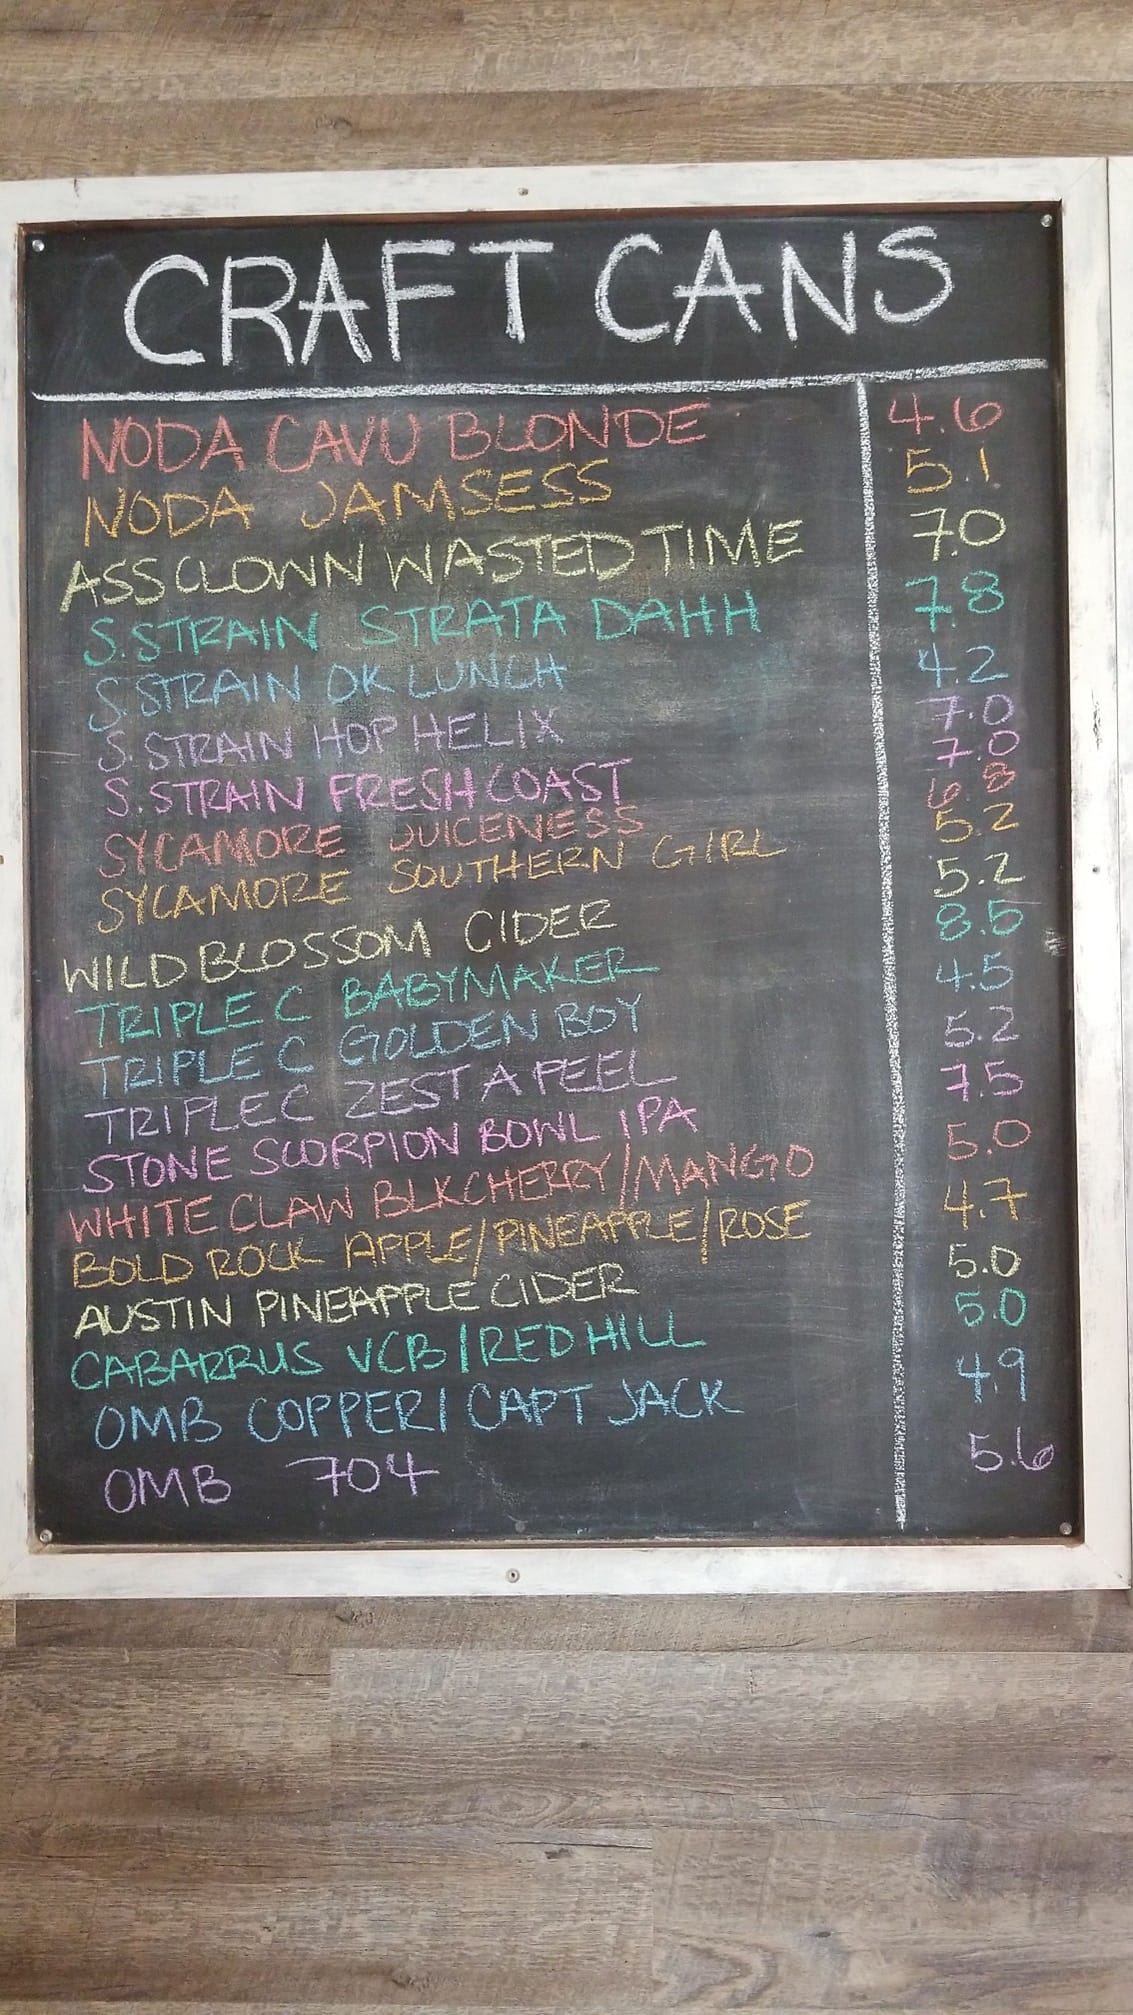 CRAFT CANS
NODA CAVU BLONDE 4.6
NODA JAMSESS 5.1
ASSCLOWN WASTED TIME 7.0
S.STRAIN STRATA DAHH 7.8
S.STRAIN OK LUNCH 4.2
S.STRAIN HOP HELIX 7.0
S.STRAIN FRESH COAST 7.0
SYCAMORE JUICENESS 6.8
SYCAMORE SOUTHERN GIRL 5.2
WILD BLOSSOM CIDER 5.2
TRIPLE C BABYMAKER 8.5
TRIPLE C GOLDEN BOY 4.5
TRIPLE C ZEST A PEEL 5.2
STONE SCORPION BOWL IPA 7.5
WHITE CLAW BLKCHERRY/MANGO 5.0
BOLD ROCK APPLE/PINEAPPLE/ROSE 4.7
AUSTIN PINEAPPLE CIDER 5.0
CABARRUS VCB|RED HILL 5.0
OMB COPPER| CAPT JACK 4.9
OMB 704 5.6